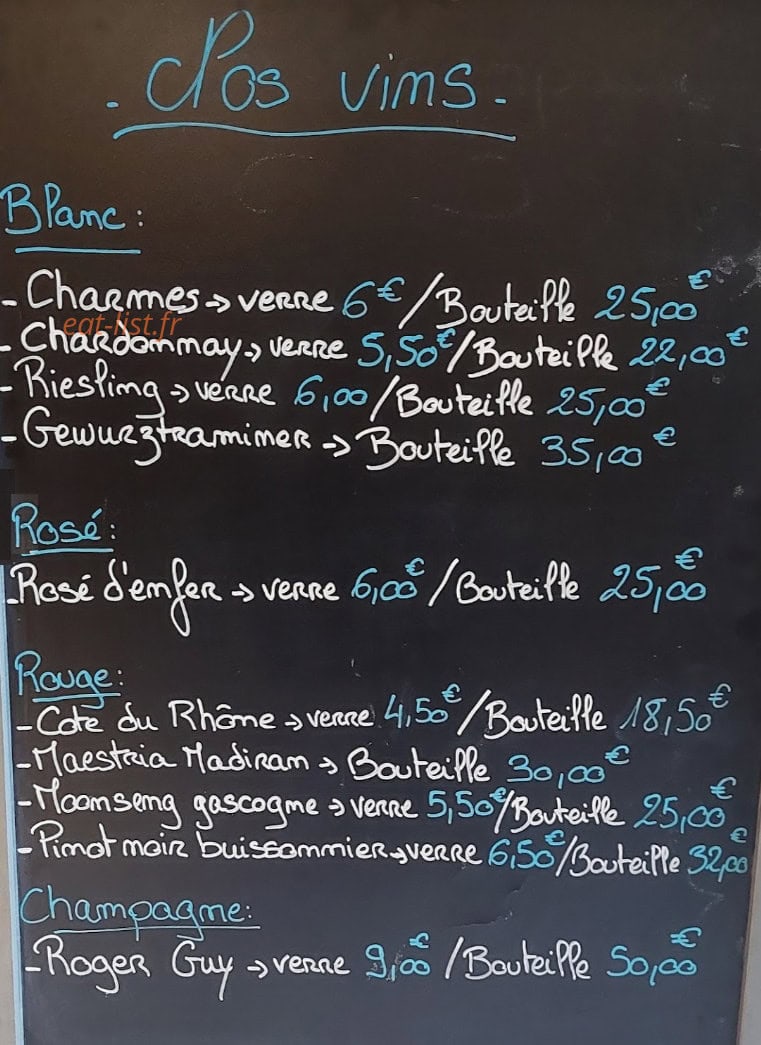 - Nos vins -
Blanc :
- Charmes → verre 6€ / Bouteille 25,00€
eat-list.fr
- Chardonnay → verre 5,50€ / Bouteille 22,00€
- Riesling → verre 6,00 / Bouteille 25,00€
- Gewurztraminer → Bouteille 35,00€
Rosé :
- Rosé d'enfer → verre 6,00€ / Bouteille 25,00€
Rouge :
- Cote du Rhône → verre 4,50€ / Bouteille 18,50€
- Maestria Madiran → Bouteille 30,00€
- Moonseng gascogne → verre 5,50€ / Bouteille 25,00€
- Pinot noir buissonnier → verre 6,50€ / Bouteille 32,00€
Champagne :
- Roger Guy → verre 9,00€ / Bouteille 50,00€